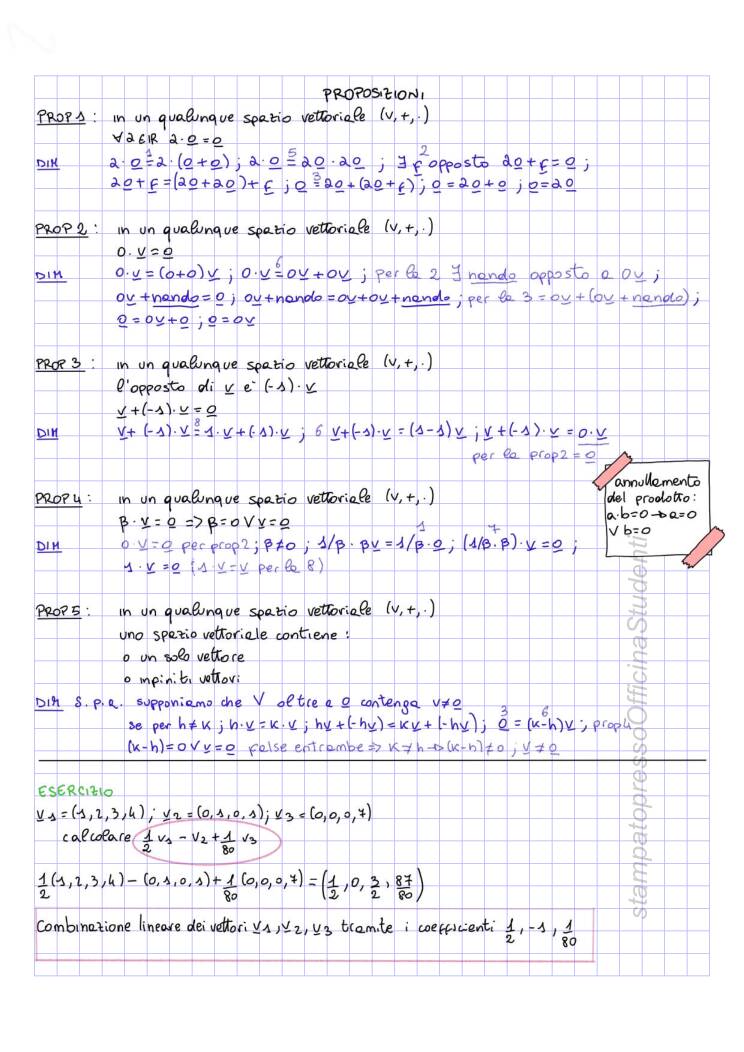 PROPOSIZIONI
PROP 1 : in un qualunque spazio vettoriale (V,+,·)
∀a∈IR a·0=0
DIM a·0 =¹ a·(0+0) ; a·0 =⁵ a0·a0 ; ∃ f² opposto a0+f=0 ;
a0+f=(a0+a0)+f ; 0 =³ a0+(a0+f) ; 0=a0+0 ; 0=a0
PROP 2 : in un qualunque spazio vettoriale (V,+,·)
0·v=0
DIM 0·v=(0+0)v ; 0·v =⁶ 0v+0v ; per la 2 ∃ nando opposto a 0v ;
0v+nando=0 ; 0v+nando=0v+0v+nando ; per la 3 = 0v+(0v+nando) ;
0=0v+0 ; 0=0v
PROP 3 : in un qualunque spazio vettoriale (V,+,·)
l'opposto di v e' (-1)·v
v+(-1)·v=0
DIM v+(-1)·v =⁸ 1·v+(-1)·v ; 6 v+(-1)·v=(1-1)v ; v+(-1)·v=0·v
per la prop2=0
annullamento
del prodotto:
a·b=0→a=0
∨ b=0
PROP 4 : in un qualunque spazio vettoriale (V,+,·)
β·v=0 => β=0∨v=0
DIM 0·v=0 per prop2 ; β≠0 ; 1/β·βv =¹ 1/β·0 ; (1/β·β)⁷·v=0 ;
1·v=0 (1·v=v per la 8)
PROP 5 : in un qualunque spazio vettoriale (V,+,·)
uno spazio vettoriale contiene :
o un solo vettore
o infiniti vettori
DIM S.p.a. supponiamo che V oltre a 0 contenga v≠0
se per h≠k ; h·v=k·v ; hv+(-hv)=kv+(-hv) ; 0³=(k-h)⁶v ; prop4
(k-h)=0∨v=0 false entrambe => k≠h→(k-h)≠0 ; v≠0
ESERCIZIO
v1=(1,2,3,4) ; v2=(0,1,0,1) ; v3=(0,0,0,7)
calcolare 1/2 v1 - v2 + 1/80 v3
1/2(1,2,3,4)-(0,1,0,1)+1/80(0,0,0,7)=(1/2,0,3/2,87/80)
Combinazione lineare dei vettori v1,v2,v3 tramite i coefficienti 1/2,-1,1/80
stampatopressoOfficinaStudenti